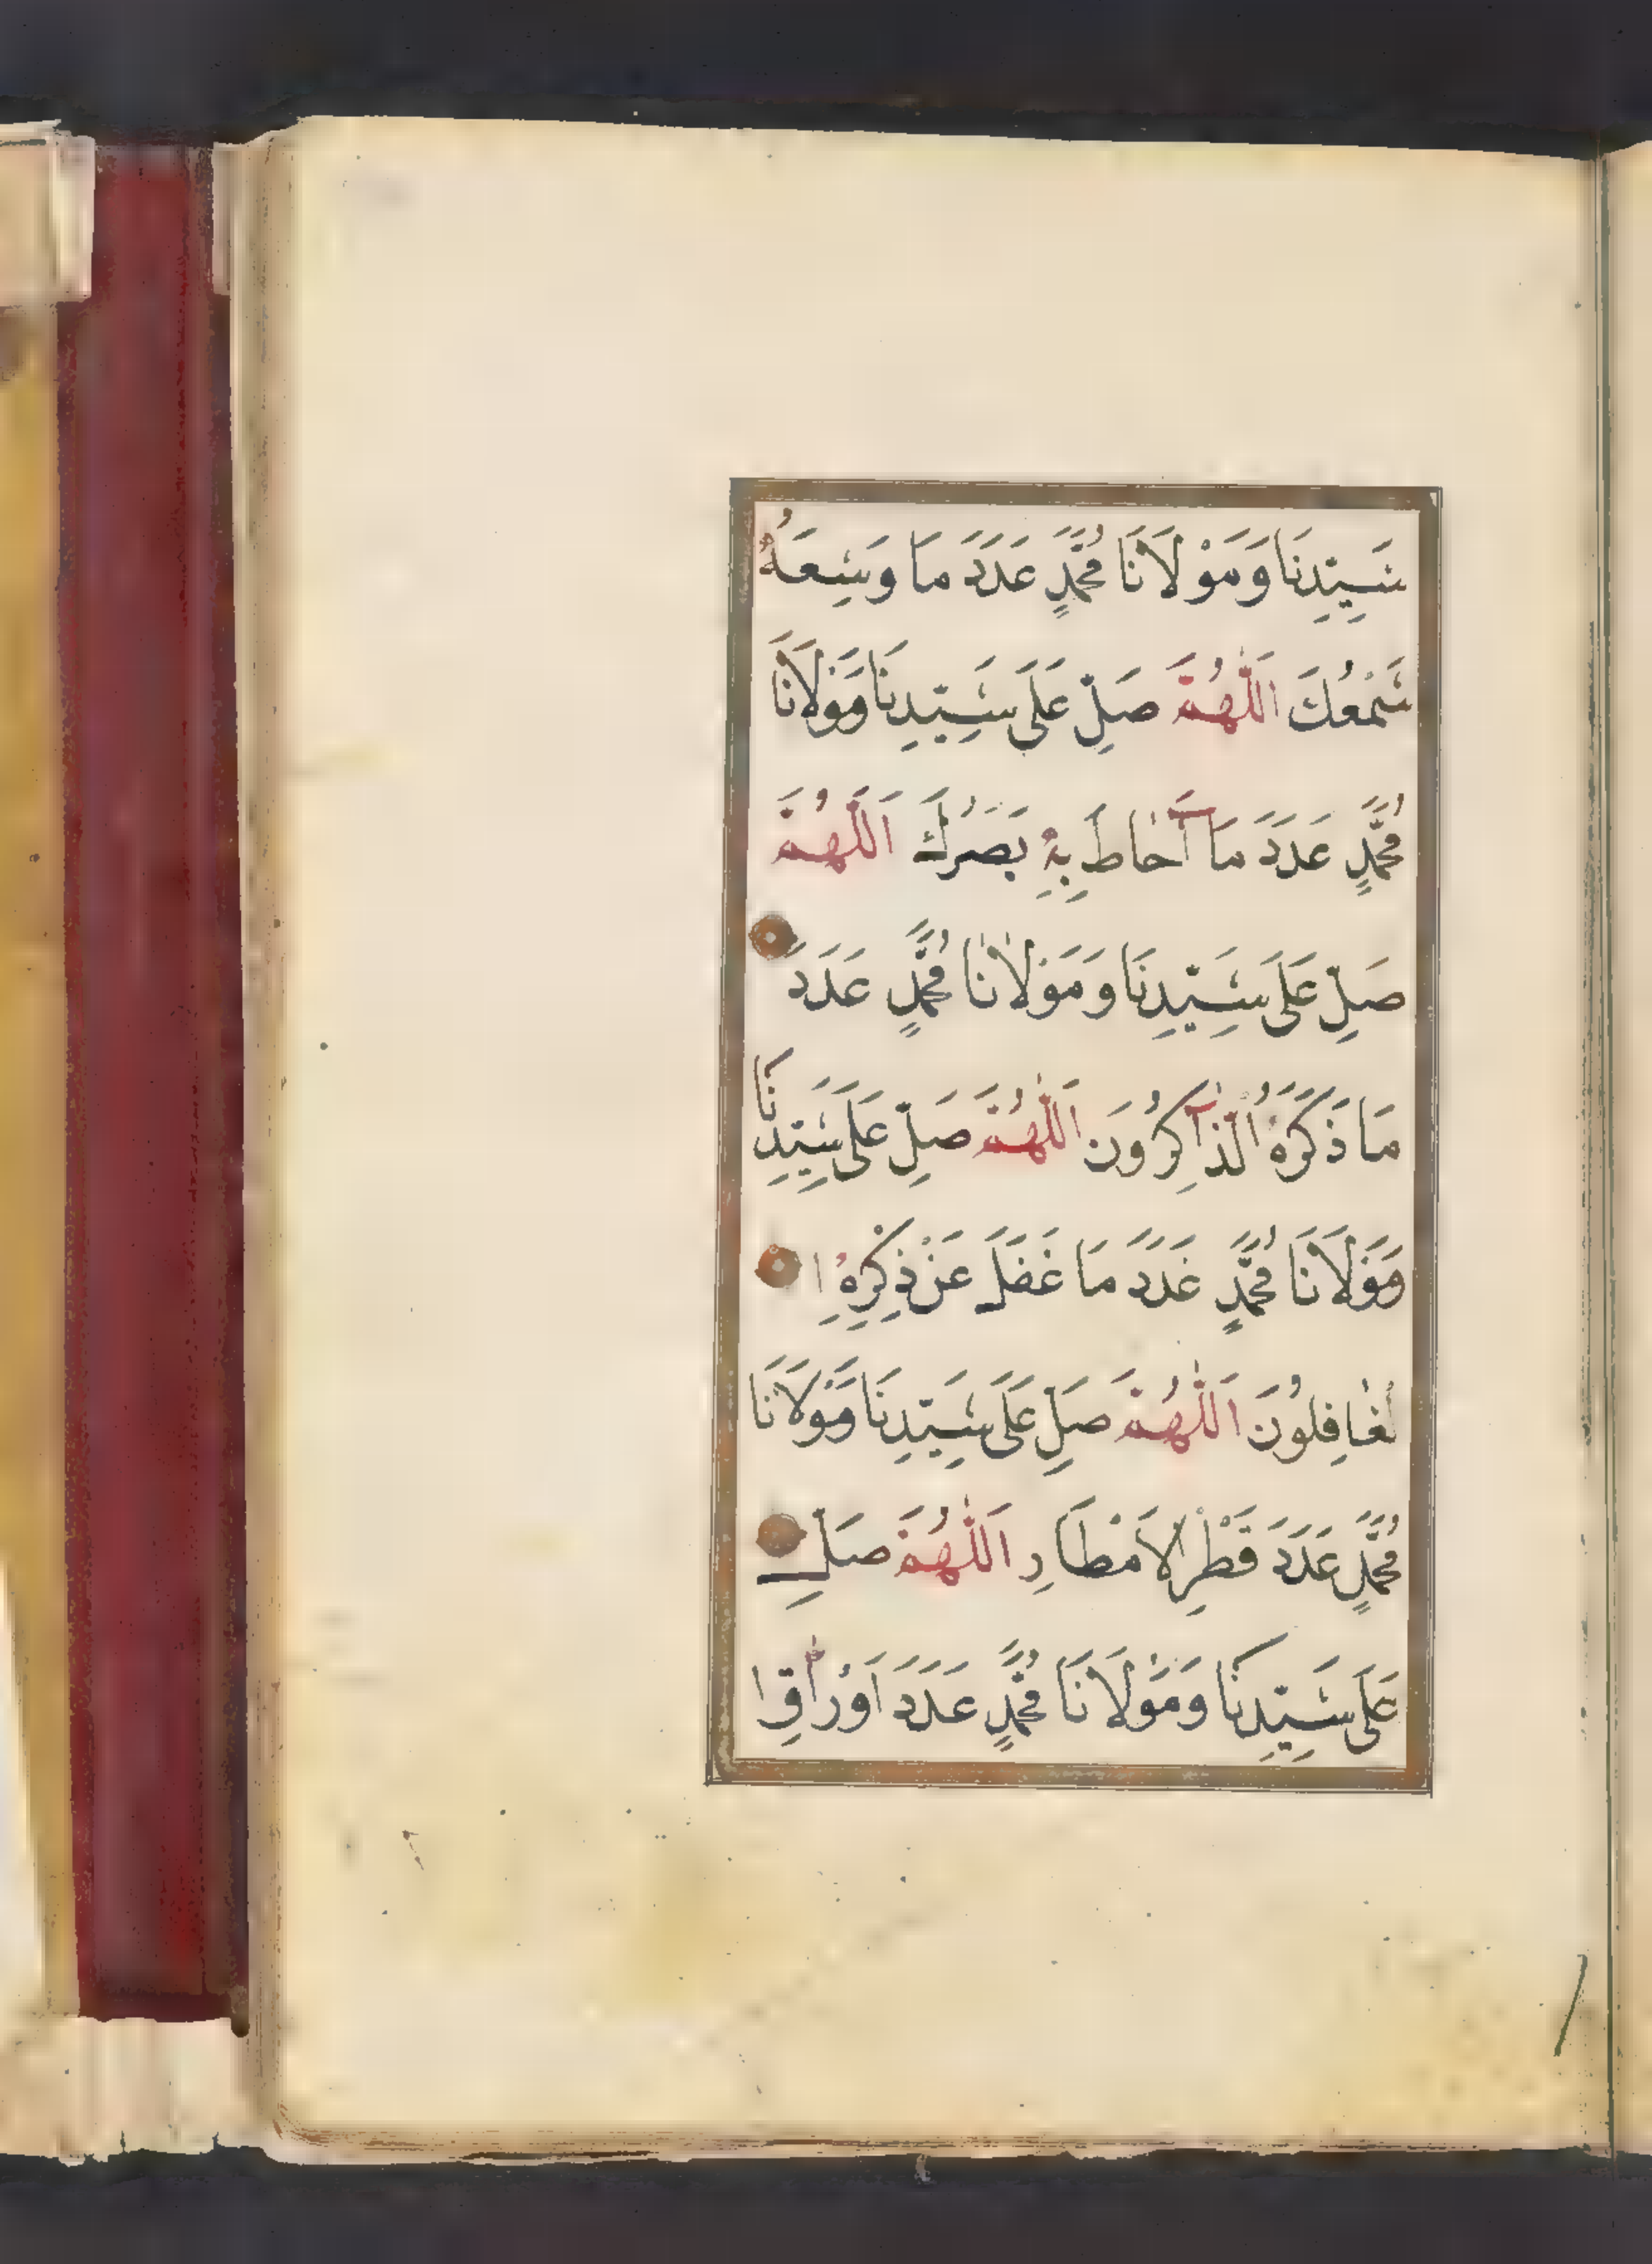 سَيِّدِنَا وَمَوْلَانَا مُحَمَّدٍ عَدَدَ مَا وَسِعَهُ
سَمْعُكَ اَللّٰهُمَّ صَلِّ عَلَى سَيِّدِنَا وَمَوْلَانَا
مُحَمَّدٍ عَدَدَ مَا اَحَاطَ بِهِ بَصَرُكَ اَللّٰهُمَّ
صَلِّ عَلَى سَيِّدِنَا وَمَوْلَانَا مُحَمَّدٍ عَدَدَ
مَا ذَكَرَهُ الذَّاكِرُونَ اَللّٰهُمَّ صَلِّ عَلَى سَيِّدِنَا
وَمَوْلَانَا مُحَمَّدٍ عَدَدَ مَا غَفَلَ عَنْ ذِكْرِهِ ا
لْغَافِلُونَ اَللّٰهُمَّ صَلِّ عَلَى سَيِّدِنَا وَمَوْلَانَا
مُحَمَّدٍ عَدَدَ قَطْرِ الْاَمْطَارِ اَللّٰهُمَّ صَلِّ
عَلَى سَيِّدِنَا وَمَوْلَانَا مُحَمَّدٍ عَدَدَ اَوْرَاقِ ا